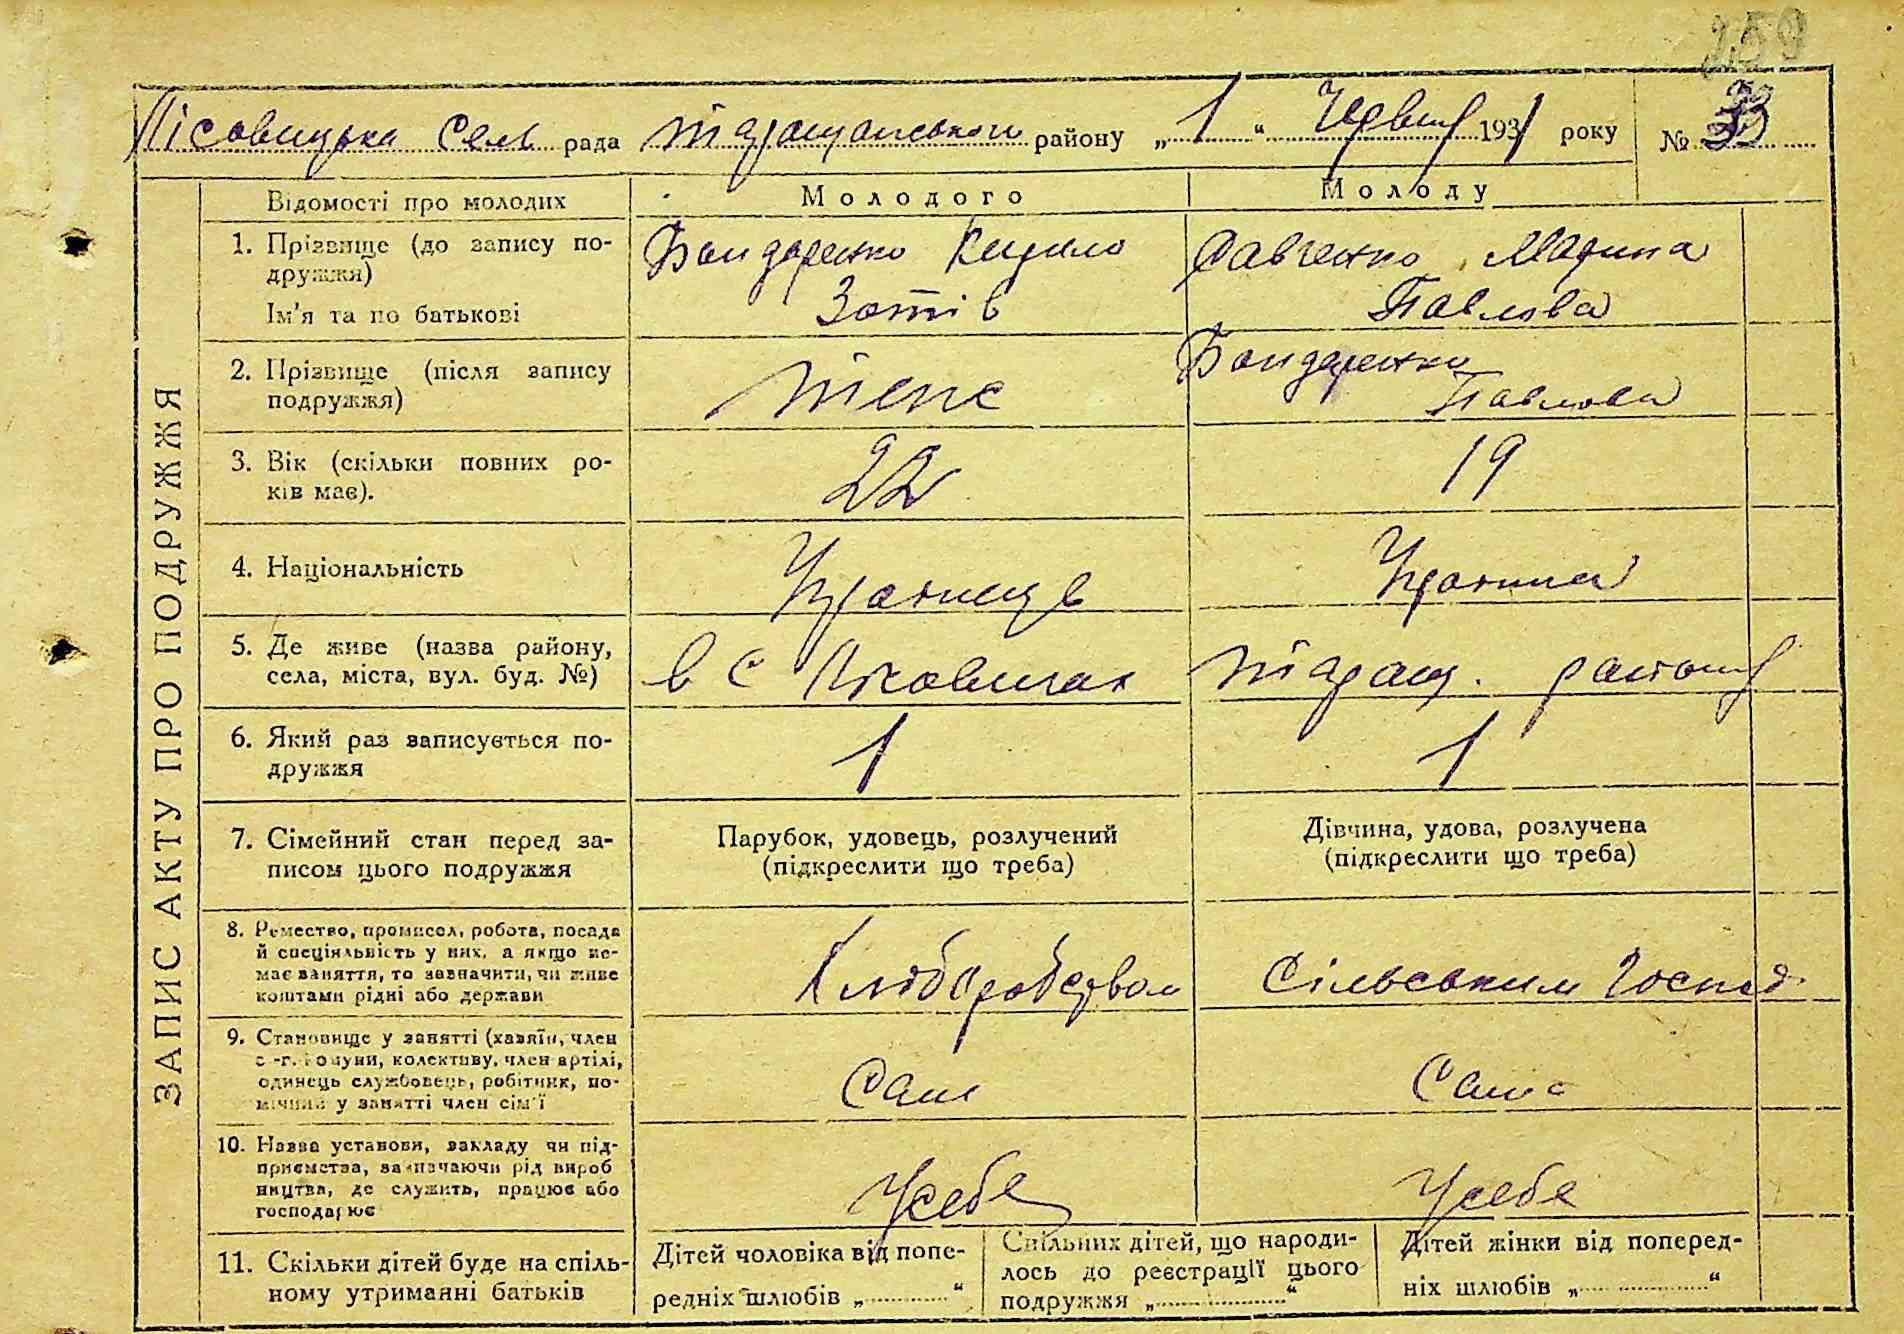 259
Лісовицька Сель рада Таращанського району „1“ Червня 1931 року № 33
ЗАПИС АКТУ ПРО ПОДРУЖЖЯ
Відомості про молодих
Молодого
Молоду
1. Прізвище (до запису по-
дружжя)
Ім'я та по батькові
Бондаренко Кирило
Зотів
Савченко Марина
Павлова
2. Прізвище (після запису
подружжя)
Теж
Бондаренко
Павлова
3. Вік (скільки повних ро-
ків має).
22
19
4. Національність
Українець
Українка
5. Де живе (назва району,
села, міста, вул. буд. №)
в с Лісовичах
Таращ. району
6. Який раз записується по-
дружжя
1
1
7. Сімейний стан перед за-
писом цього подружжя
Парубок, удовець, розлучений
(підкреслити що треба)
Дівчина, удова, розлучена
(підкреслити що треба)
8. Ремество, промисел, робота, посада
й спеціяльність у них, а якщо не-
має заняття, то зазначити, чи живе
коштами рідні або держави
Хлібробством
Сільським Господ.
9. Становище у занятті (хазяїн, член
с-г. комуни, колективу, член артілі,
одинець службовець, робітник, по-
мічний у занятті член сім'ї
Сам
Сама
10. Назва установи, закладу чи під-
приємства, зазначаючи рід вироб
ництва, де служить, працює або
господарює
У себе
У себе
11. Скільки дітей буде на спіль-
ному утриманні батьків
Дітей чоловіка від попе-
редніх шлюбів „............“
Спільних дітей, що народи-
лось до реєстрації цього
подружжя „............“
Дітей жінки від поперед-
ніх шлюбів „............“